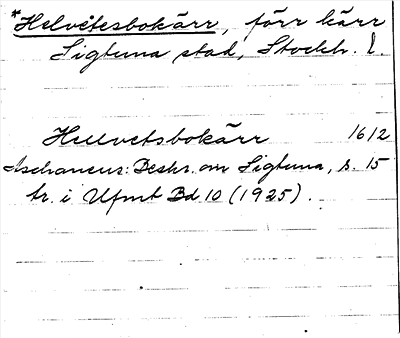 *Helvetesbokärr, förr kärr
Sigtuna stad, Stockh. l.
Hellvetsbokärr 1612
Aschaneus: Beskr. om Sigtuna, s. 15
tr. i Ufmt Bd 10 (1925).